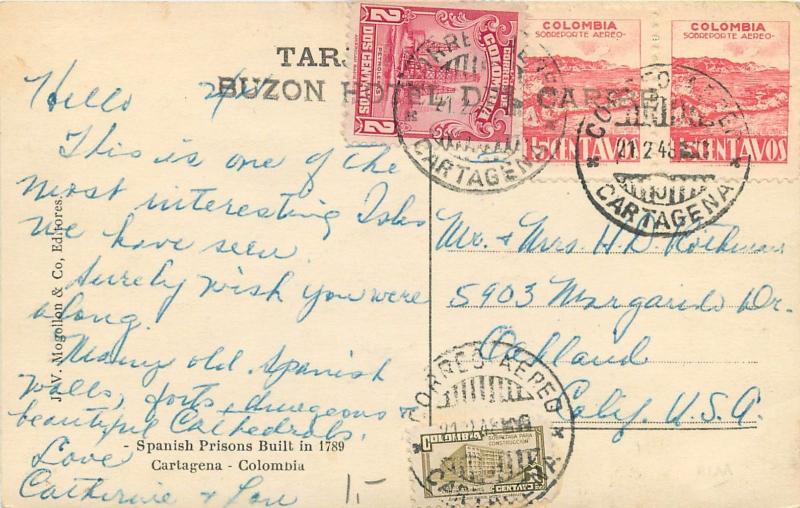 TARJ
BUZON HOTEL DEL CARIBE
CORREOS DE
COLOMBIA
2
DOS CENTAVOS
PETROLEOS
2
COLOMBIA
SOBREPORTE AEREO
15 CENTAVOS
COLOMBIA
SOBREPORTE AEREO
15 CENTAVOS
CARTAGENA
CORREO AEREO
21.2.48
CARTAGENA
Hello
This is one of the
most interesting Isles
We have seen
Surely wish you were
along.
Many old Spanish
Walls, forts, dungeons +
beautiful Cathedrals.
Love
Catherine + Lou
1-
J. V. Mogollon & Co, Editores.
Spanish Prisons Built in 1789
Cartagena - Colombia
Mr. + Mrs H. D.
5903 Margarido Dr.
Oakland
Calif. U.S.A.
CORREO AEREO
21.2.48
SOBRETASA PARA
CONSTRUCCION
CENTAVO
CARTAGENA